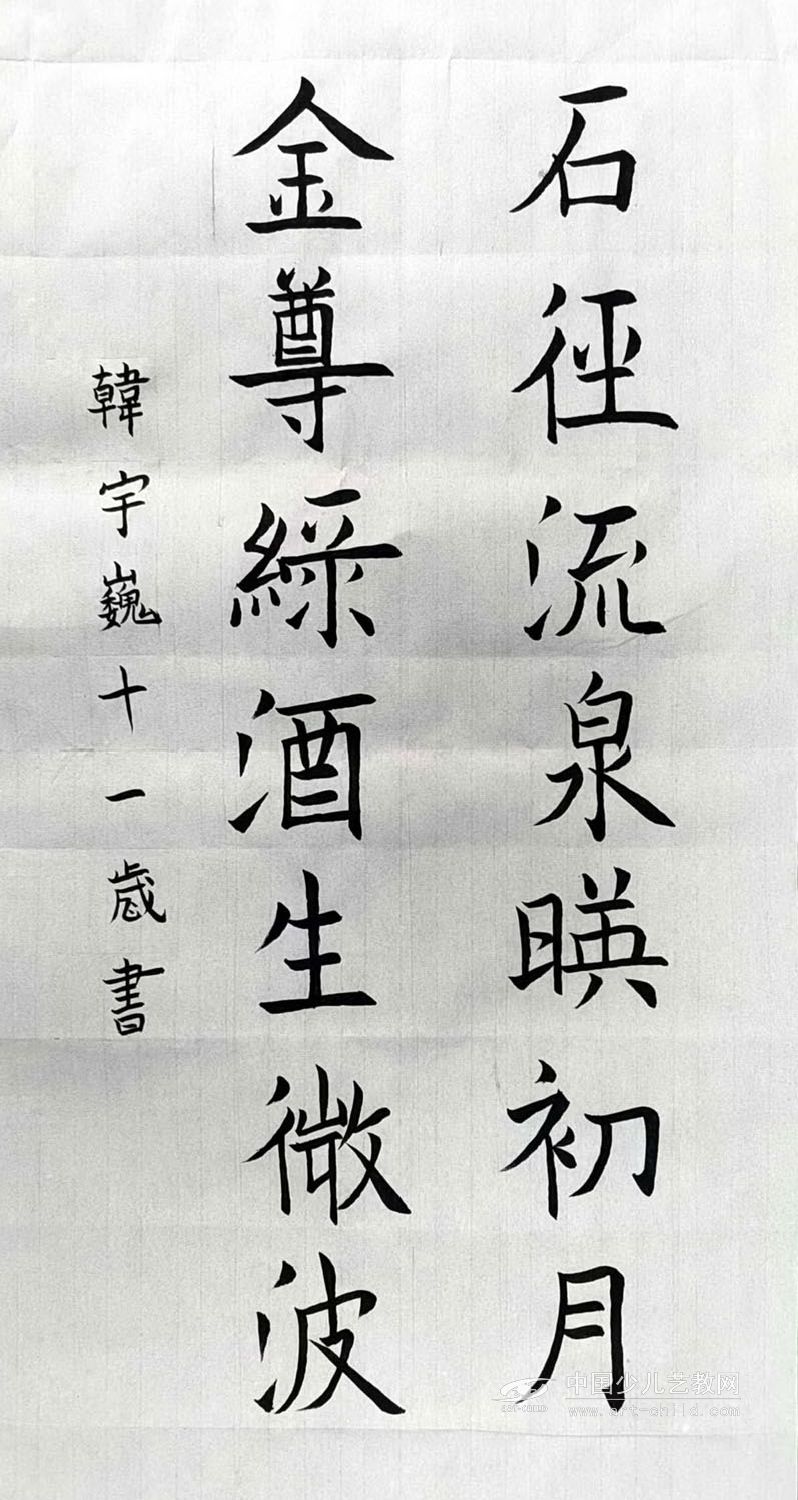 石徑流泉暎初月
金尊綠酒生微波
韓宇巍十一歲書
中国少儿艺教网
www.art-child.com